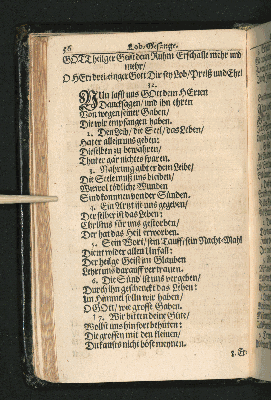 56 Lob-Gesänge.
GOTT heilger Geist dein Ruhm Erschalle mehr und
mehr/
O HErr dreieiniger Gott Dir sey Lob/Preiß und Ehr!
32.
NUn lasst uns GOtt dem HErren
Dancksagen/ und ihn ehren
Von wegen seiner Gaben/
Die wir empfangen haben.
2. Den Leib/ die Seel/ das Leben/
Hat er allein uns geben:
Dieselben zu bewahren/
Thut er gar nichtes sparen.
3. Nahrung gibt er dem Leibe/
Die Seele muß uns bleiben/
Wiewol tödliche Wunden
Sind kommen von der Sünden.
4. Ein Artzt ist uns gegeben/
Der selber ist das Leben:
Christus für uns gestorben/
Der hat das Heil erworben.
5. Sein Wort/ sein Tauff/ sein Nacht-Mahl
Dient wider allen Unfall:
Der heilge Geist im Glauben
Lehrt uns darauff vertrauen.
6. Die Sünd ist uns vergeben/
Durch ihn geschenckt das Leben:
Im Himmel solln wir haben/
O GOtt/ wie grosse Gaben.
7. Wir bitten deine Güte/
Wollst uns hinfort behüten:
Die grossen mit den kleinen/
Du kansts nicht böse meynen.
8. Er-